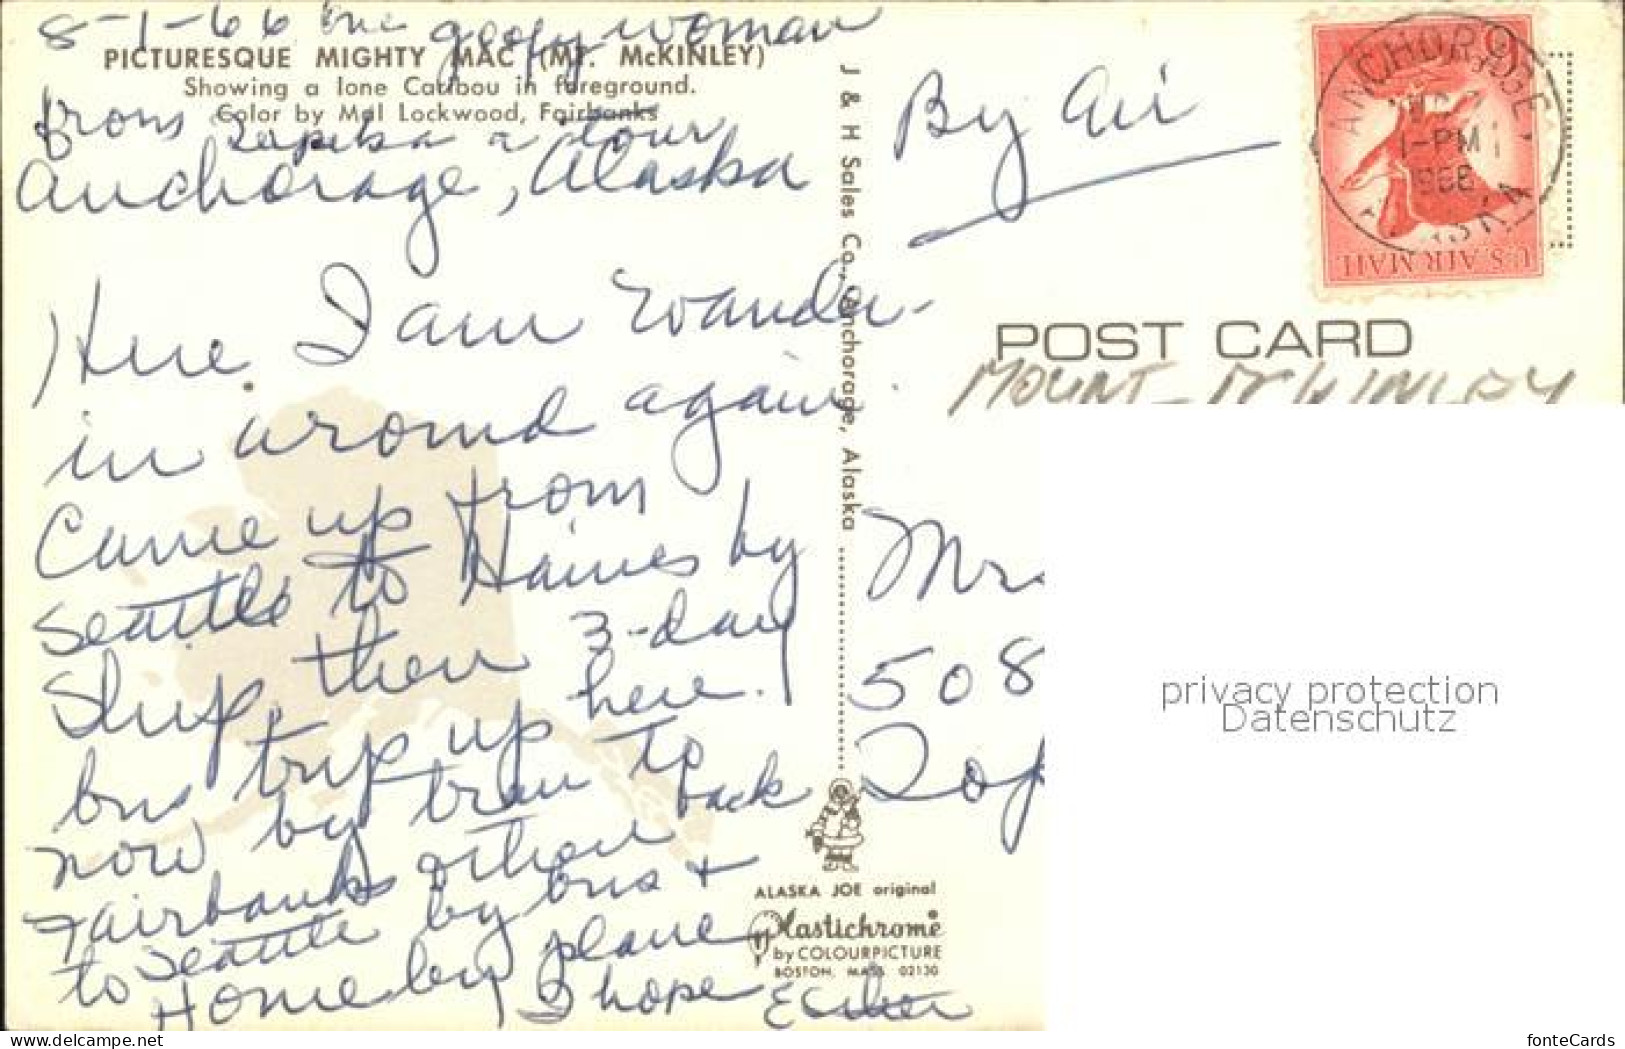 8-1-66 one goofy woman
PICTURESQUE MIGHTY MAC (MT. McKINLEY)
Showing a lone Caribou in foreground.
Color by Mal Lockwood, Fairbanks
from Topeka a tour
Anchorage, Alaska
Here I am wander-
in around again.
Came up from
Seattle to Haines by
ship, then 3-day
bus trip up here.
now by train to
Fairbanks & then back
to Seattle by bus +
Home by plane
I hope Esther
J & H Sales Co., Anchorage, Alaska
ALASKA JOE original
Plastichrome
by COLOURPICTURE
BOSTON, MASS 02130
By Air
ANCHORAGE
1-PM
1966
U.S. AIR MAIL
POST CARD
MOUNT McKINLEY
Mrs
508
Top
privacy protection
Datenschutz
www.delcampe.net
fonteCards